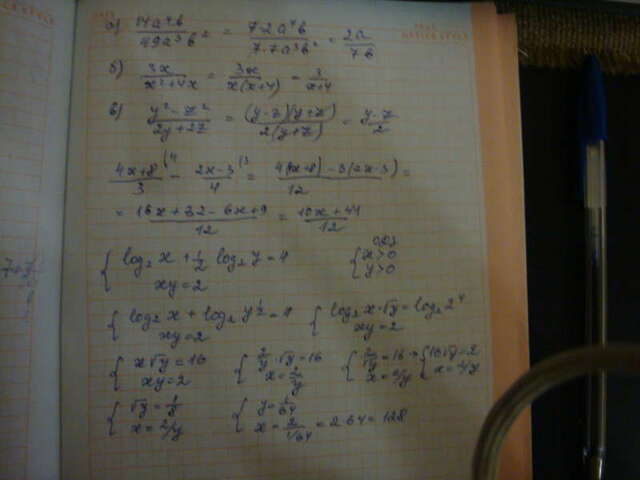 а) 14a⁴b / 49a³b² = 7·2a⁴b / 7·7a³b² = 2a / 7b
б) 3x / x²+4x = 3x / x(x+4) = 3 / x+4
в) y²-z² / 2y+2z = (y-z)(y+z) / 2(y+z) = y-z / 2
4x+8 / 3 (4 - 2x-3 / 4 (3 = 4(4x+8)-3(2x-3) / 12 =
= 16x+32-6x+9 / 12 = 10x+41 / 12
{ log₂ x + 1/2 log₂ y = 4 xy=2 ОДЗ { x>0 y>0
{ log₂ x + log₂ y^1/2 = 4 xy=2 { log₂ x·√y = log₂ 2⁴ xy=2
{ x√y=16 xy=2 { 2/y·√y=16 x=2/y { 2/√y=16 x=2/y { 16√y=2 x=2/y
{ √y=1/8 x=2/y { y=1/64 x=2 / 1/64 = 2·64=128